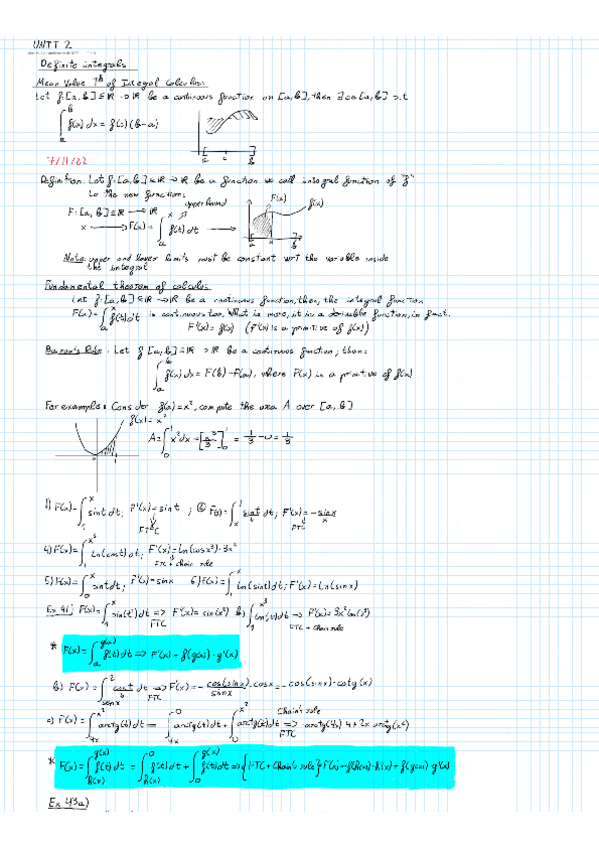 UNIT 2
Definite integrals
Mean Value Th of Integral Calculus:
Let f: [a, b] ⊆ ℝ → ℝ be a continuous function on [a, b], then ∃ c ∈ [a, b] s.t
∫_a^b f(x) dx = f(c) (b-a)
a c b
7/11/22
Definition: Let f: [a, b] ⊆ ℝ → ℝ be a function we call integral function of "f"
to the new function:
F: [a, b] ⊆ ℝ → ℝ upper bound F(x) f(x)
x → F(x) = ∫_a^x f(t) dt →
a x b
Note: upper and lower limits must be constant wrt the variable inside
the integral
Fundamental theorem of calculus:
Let f: [a, b] ⊆ ℝ → ℝ be a continuous function, then, the integral function
F(x) = ∫_a^x f(t) dt is continuous too. What is more, it is a derivable function, in fact.
F'(x) = f(x) (F(x) is a primitive of f(x))
Barrow's Rule. Let f [a, b] ⊆ ℝ → ℝ be a continuous function; then:
∫_a^b f(x) dx = F(b) - F(a), where F(x) is a primitive of f(x)
For example: Consider f(x) = x², compute the area A over [a, b]
f(x) = x²
A = ∫_0^1 x² dx = [x³/3]_0^1 = 1/3 - 0 = 1/3
1) F(x) = ∫_1^x sin t dt; F'(x) = sin t ; F(x) = ∫_x^1 sin t/t dt; F'(x) = - sin x/x
FTC FTC
4) F(x) = ∫_1^{x³} ln(cos t) dt; F'(x) = ln(cos x³) · 3x²
FTC + chain rule
5) F(x) = ∫_0^x sin t dt; F'(x) = sin x 6) F(x) = ∫_1^x ln(sin t) dt; F'(x) = ln(sin x)
Ex 41; F(x) = ∫_1^x sin(t²) dt => F'(x) = sin(x²) b) ∫_1^{x³} dt => F'(x) = 3x²
FTC FTC + Chain rule
* F(x) = ∫_a^{g(x)} f(t) dt => F'(x) = f(g(x)) · g'(x)
b) F(x) = ∫_{sen x}^2 cos t/t dt => F'(x) = - cos(sin x)/sin x · cos x = - cos(sin x) · cotg(x)
c) F(x) = ∫_{4x}^{x²} arctg(t) dt = ∫_{4x}^0 arctg(t) dt + ∫_0^{x²} arctg(t) dt => arctg(4x) 4 + 2x arctg(x²)
Chain's rule
FTC
* F(x) = ∫_{h(x)}^{g(x)} f(t) dt = ∫_{h(x)}^0 f(t) dt + ∫_0^{g(x)} f(t) dt => {FTC + Chain's rule} F'(x) = f(h(x)) · h'(x) + f(g(x)) g'(x)
Ex 43a)